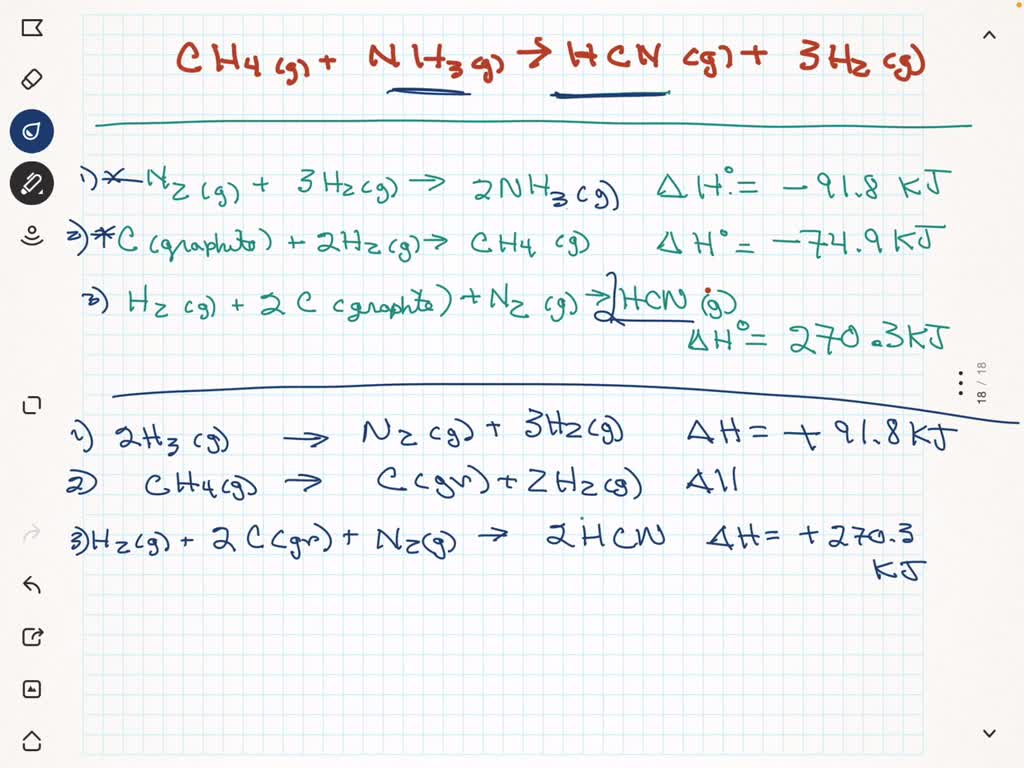 CH4 (g) + NH3 (g) → HCN (g) + 3H2 (g)
1) N2 (g) + 3H2 (g) → 2NH3 (g) ΔH° = -91.8 KJ
2) * C (graphite) + 2H2 (g) → CH4 (g) ΔH° = -74.9 KJ
3) H2 (g) + 2 C (graphte) + N2 (g) → 2HCN (g)
ΔH° = 270.3 KJ
18 / 18
1) 2H3 (g) → N2 (g) + 3H2 (g) ΔH = + 91.8 KJ
2) CH4 (g) → C (gr) + 2H2 (g) ΔH
3) H2 (g) + 2 C (gr) + N2 (g) → 2HCN ΔH = +270.3
KJ